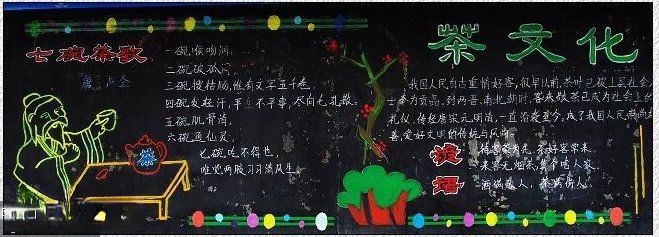 七碗茶歌
唐 卢仝
一碗喉吻润
二碗破孤闷
三碗搜枯肠,惟有文字五千卷
四碗发轻汗,平生不平事,尽向毛孔散
五碗肌骨清
六碗通仙灵
七碗吃不得也
唯觉两腋习习清风生
茶文化
我国人民自古重情好客,很早以前,茶叶已
为贡品,到两晋,南北朝时,客来敬茶已成为社会
礼仪,传经唐宋元明清,一直沿袭至今,成了我国人民
善,爱好文明的传统与风尚
谚语
客来茶当先
酒满敬人,茶满伤人